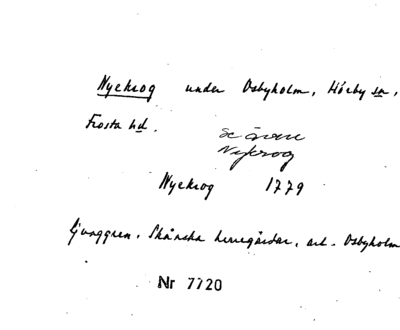 Nyekrog under Osbyholm, Hörby sn,
Frosta hd.
Se även
Nykrog
Nyekrog 1779
Ljunggren, Skånska herregårdar, art. Osbyholm
Nr 7720